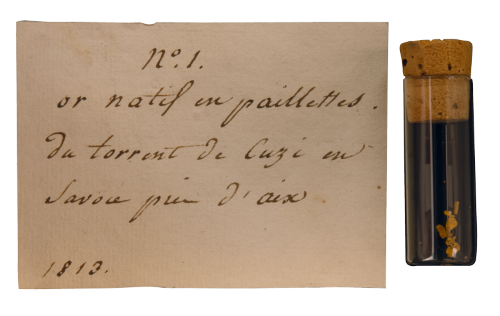 No. 1.
or natif en paillettes.
du torrent de Cuzi en
Savoie près d'aix
1813.